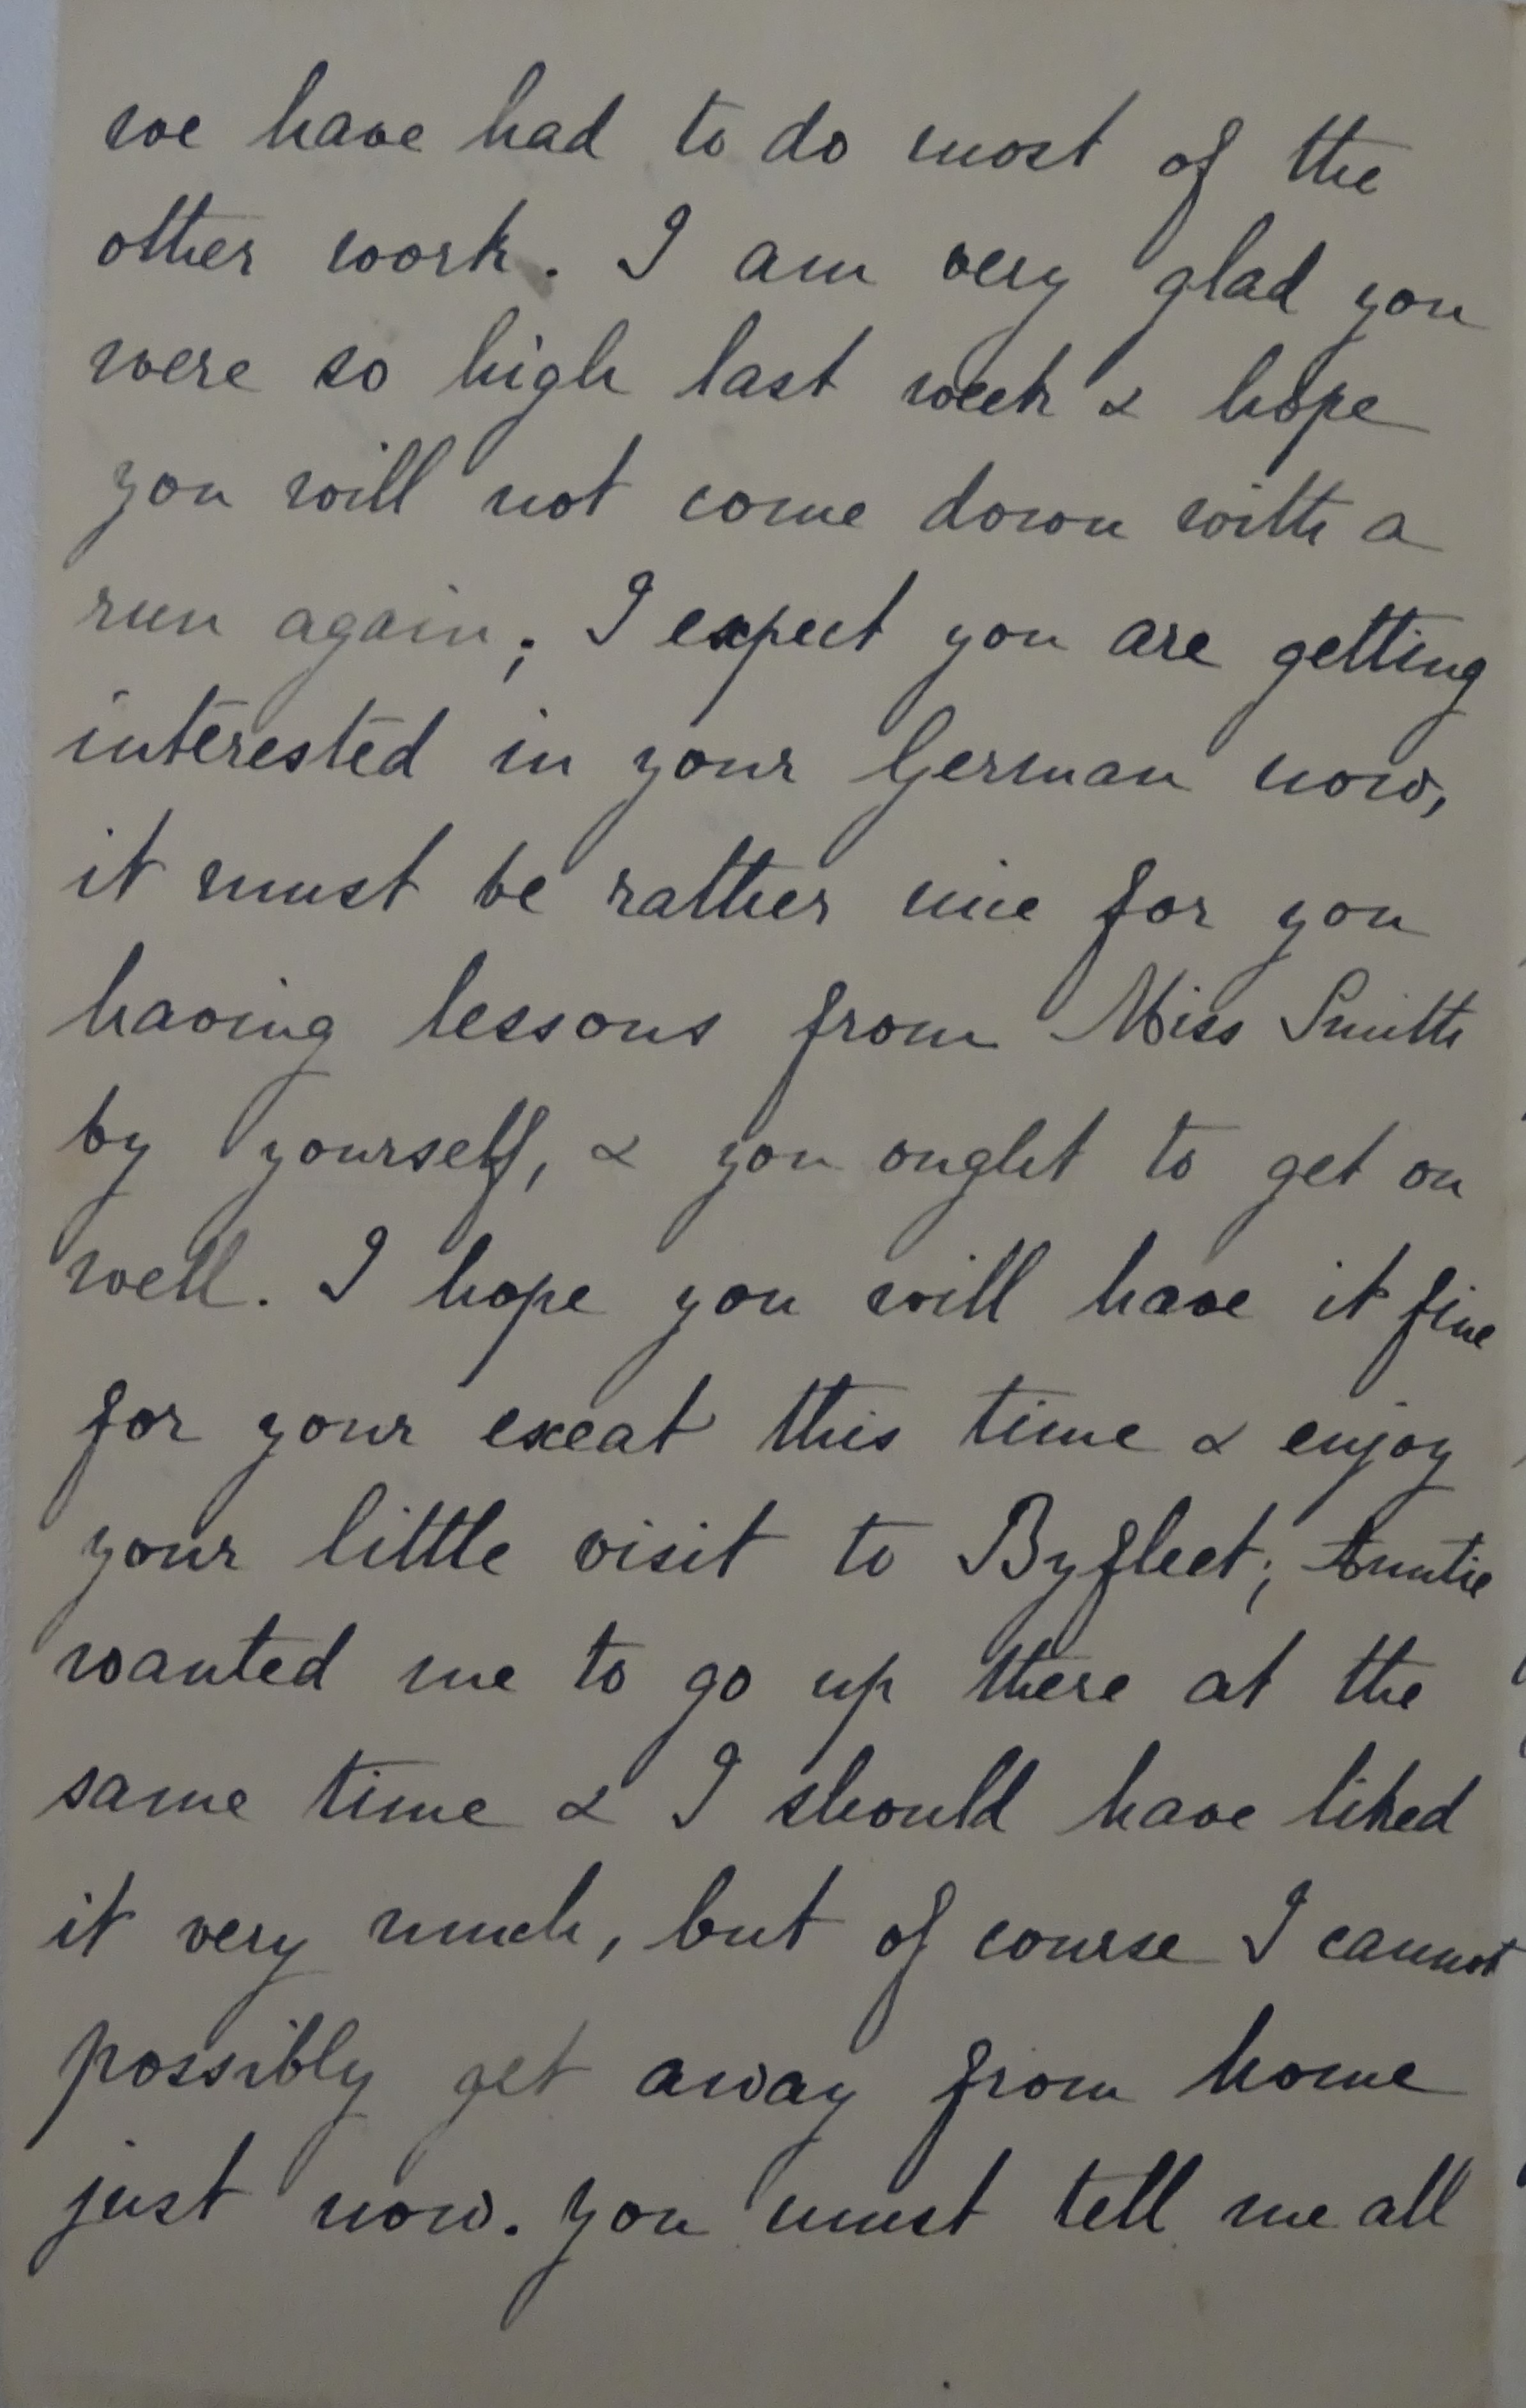 we have had to do most of the
other work. I am very glad you
were so high last week & hope
you will not come down with a
run again; I expect you are getting
interested in your German now,
it must be rather nice for you
having lessons from Miss Smith
by yourself, & you ought to get on
well. I hope you will have it fine
for your exeat this time & enjoy
your little visit to Byfleet; Auntie
wanted me to go up there at the
same time & I should have liked
it very much, but of course I cannot
possibly get away from home
just now. You must tell me all